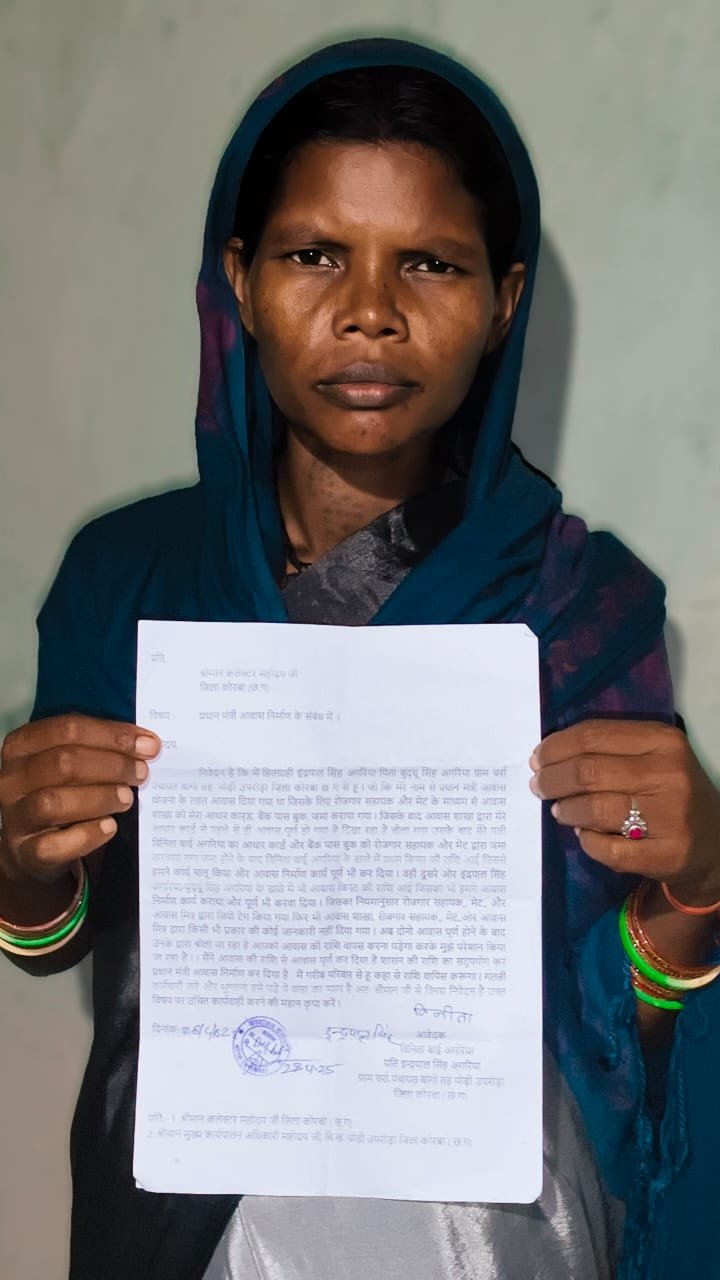 प्रति,
श्रीमान कलेक्टर महोदय जी
जिला कोरबा (छ ग)
विषय:- प्रधान मंत्री आवास निर्माण के संबंध में ।
दय,
निवेदन है कि मैं हितग्राही इंद्रपाल सिंह अगरिया पिता बुद्धू सिंह अगरिया ग्राम चर्रा
पंचायत बागो तह. पोड़ी उपरोड़ा जिला कोरबा छ ग से हू । जो कि मेरे नाम से प्रधान मंत्री आवास
योजना के तहत आवास दिया गया था जिसके लिए रोजगार सहायक और मेट के माध्यम से आवास
शाखा को मेरा आधार कारड, बैंक पास बुक, जमा कराया गया । जिसके बाद आवास शाखा द्वारा मेरे
आधार कार्ड से पहले से ही आवास पूर्ण हो गया है दिखा रहा है बोला गया उसके बाद मेरे पत्नी
विनिता बाई अगरिया का आधार कार्ड और बैंक पास बुक को रोजगार सहायक और मेट द्वारा जमा
कराया गया जमा होने के बाद विनिता बाई अगरिया के खाते में प्रथम किस्त की राशि आई जिससे
हमने कार्य चालू किया और आवास निर्माण कार्य पूर्ण भी कर दिया । वही दूसरे ओर इंद्रपाल सिंह
अगरिया/बुद्धू सिंह अगरिया के खाते में भी आवास किस्त की राशि आई जिसका भी हमने आवास
निर्माण कार्य कराया और पूर्ण भी करवा दिया । जिसका नियमानुसार रोजगार सहायक, मेट, और
आवास मित्र द्वारा जियो टेग किया गया फिर भी आवास शाखा, रोजगार सहायक, मेट,और आवास
मित्र द्वारा किसी भी प्रकार की कोई जानकारी नहीं दिया गया । अब दोनो आवास पूर्ण होने के बाद
उनके द्वारा बोला जा रहा है आपको आवास की राशि वापस करना पड़ेगा करके मुझे परेशान किया
जा रहा है । मैंने आवास की राशि से आवास पूर्ण कर दिया है शासन की राशि का सदुपयोग कर
प्रधान मंत्री आवास निर्माण कर दिया है . में गरीब परिवार से हू कहा से राशि वापिस करूंगा । गलती
कर्मचारी करे और भुगताना हमे पड़े ये कहा का न्याय है अतः श्रीमान जी से विनम्र निवेदन है उक्त
विषय पर उचित कार्यवाही करने की महान कृपा करें ।
विनीता
दिनांक: 28/4/2 इन्द्रपाल सिंह आवेदक
28-4-25
विनिता बाई अगरिया
पति इन्द्रपाल सिंह अगरिया
ग्राम चर्रा पंचायत बागो तह पोड़ी उपरोड़ा
जिला कोरबा (छ ग)
प्रति:- 1. श्रीमान कलेक्टर महोदय जी जिला कोरबा ( छ ग)
2. श्रीमान मुख्य कार्यपालन अधिकारी महोदय जी, वि.ख. पोड़ी उपरोड़ा जिला कोरबा ( छ ग)